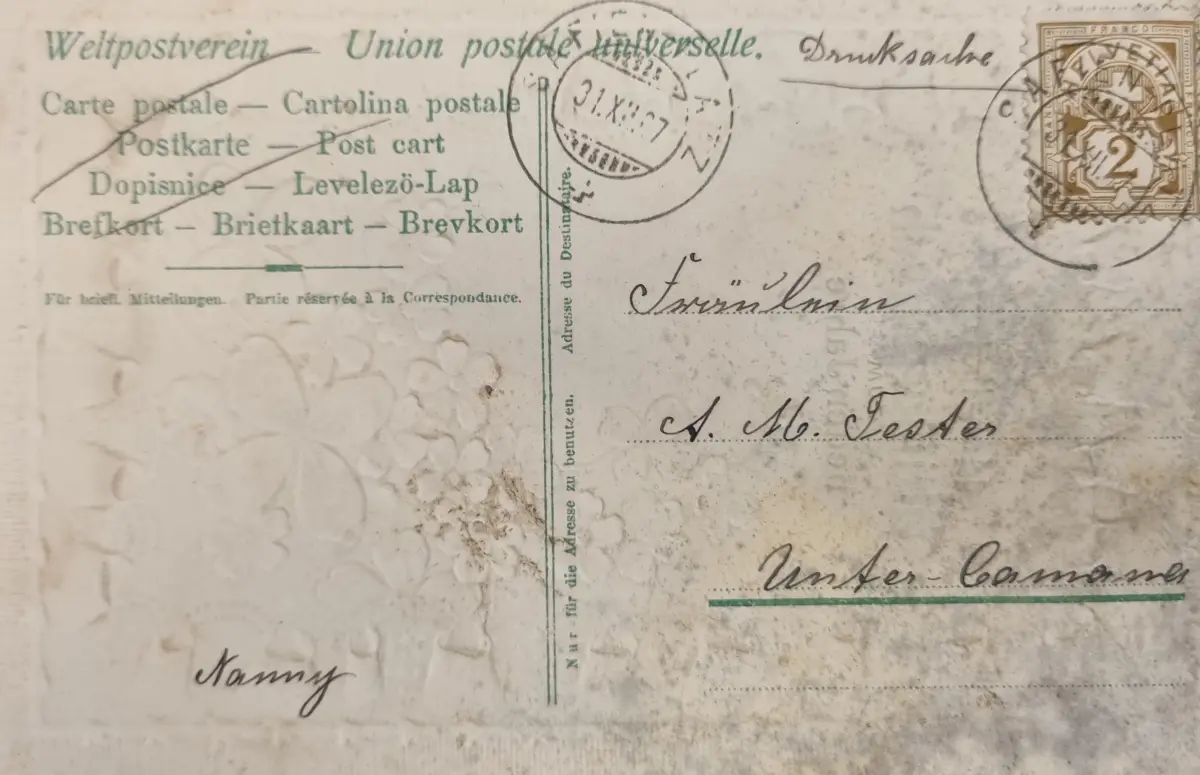 Weltpostverein — Union postale universelle.
Drucksache
Carte postale — Cartolina postale
Postkarte — Post cart
Dopisnice — Levelezö-Lap
Brefkort — Brietkaart — Brevkort
Für briefl. Mitteilungen. Partie réservée à la Correspondance.
31.XII.07
FRANCO
HELVETIA
2
Nur für die Adresse zu benutzen. Adresse du Destinataire.
Fräulein
A. M. Tester
Unter-Camana
Nanny